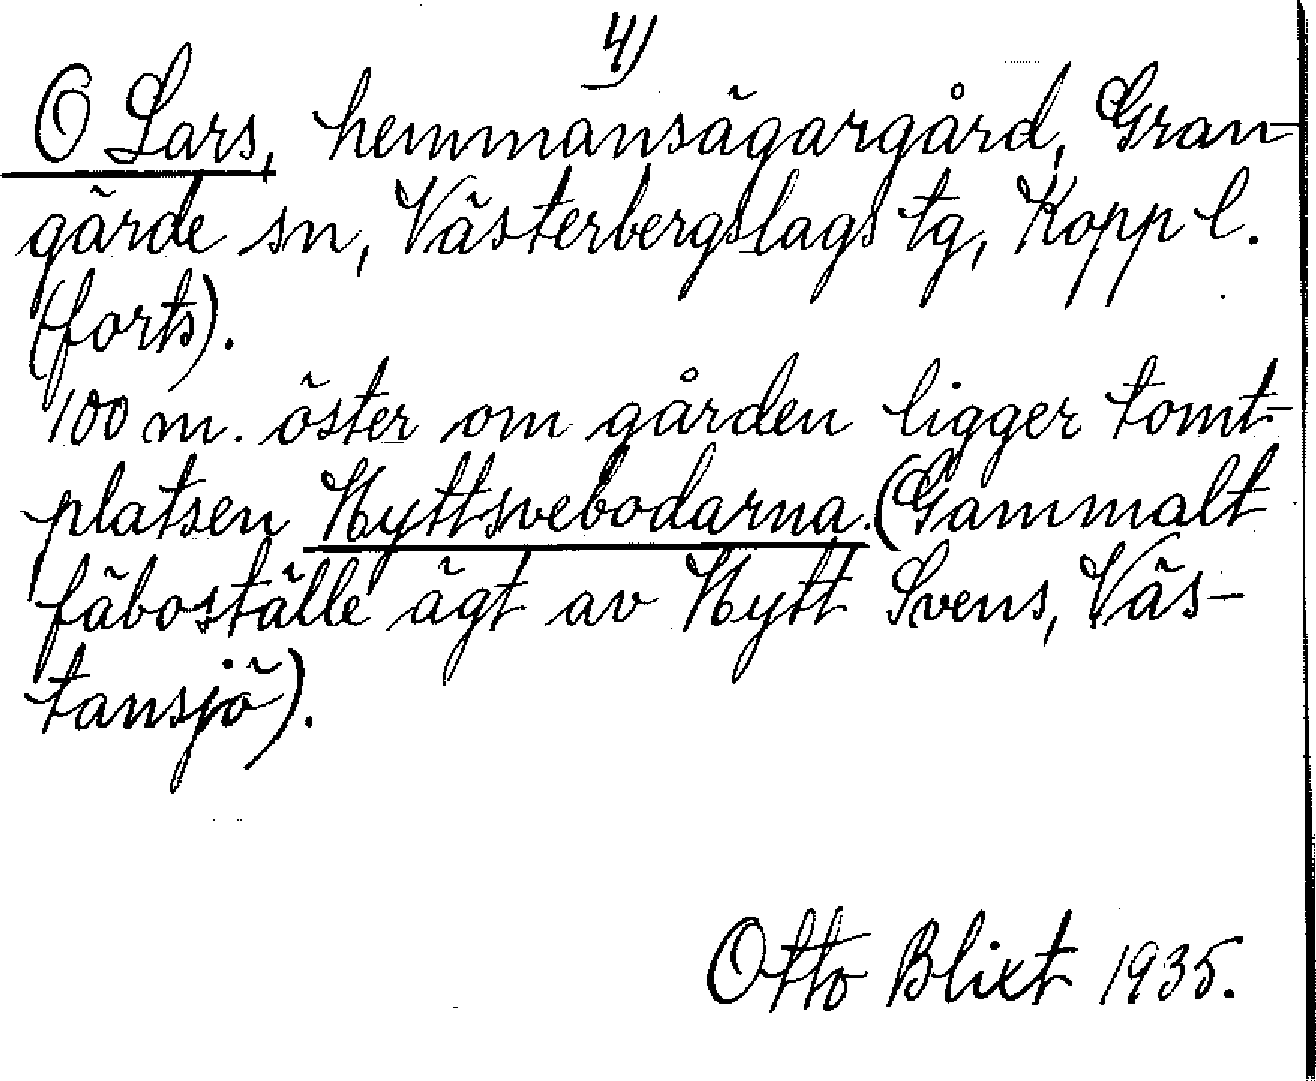 4)
O Lars, hemmansägargård, Gran-
gärde sn, Västerbergslags tg, Kopp l.
(forts).
100 m. öster om gården ligger tomt-
platsen Hyttsvebodarna. (Gammalt
fäboställe ägt av Hytt Svens, Väs-
tansjö).
Otto Blixt 1935.